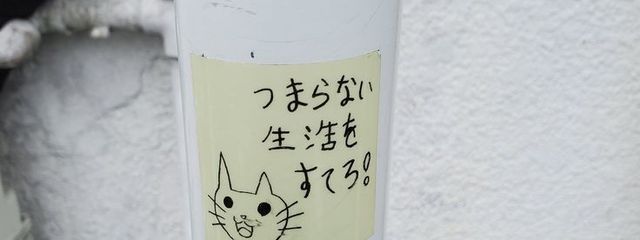 つまらない
生活を
すてろ!